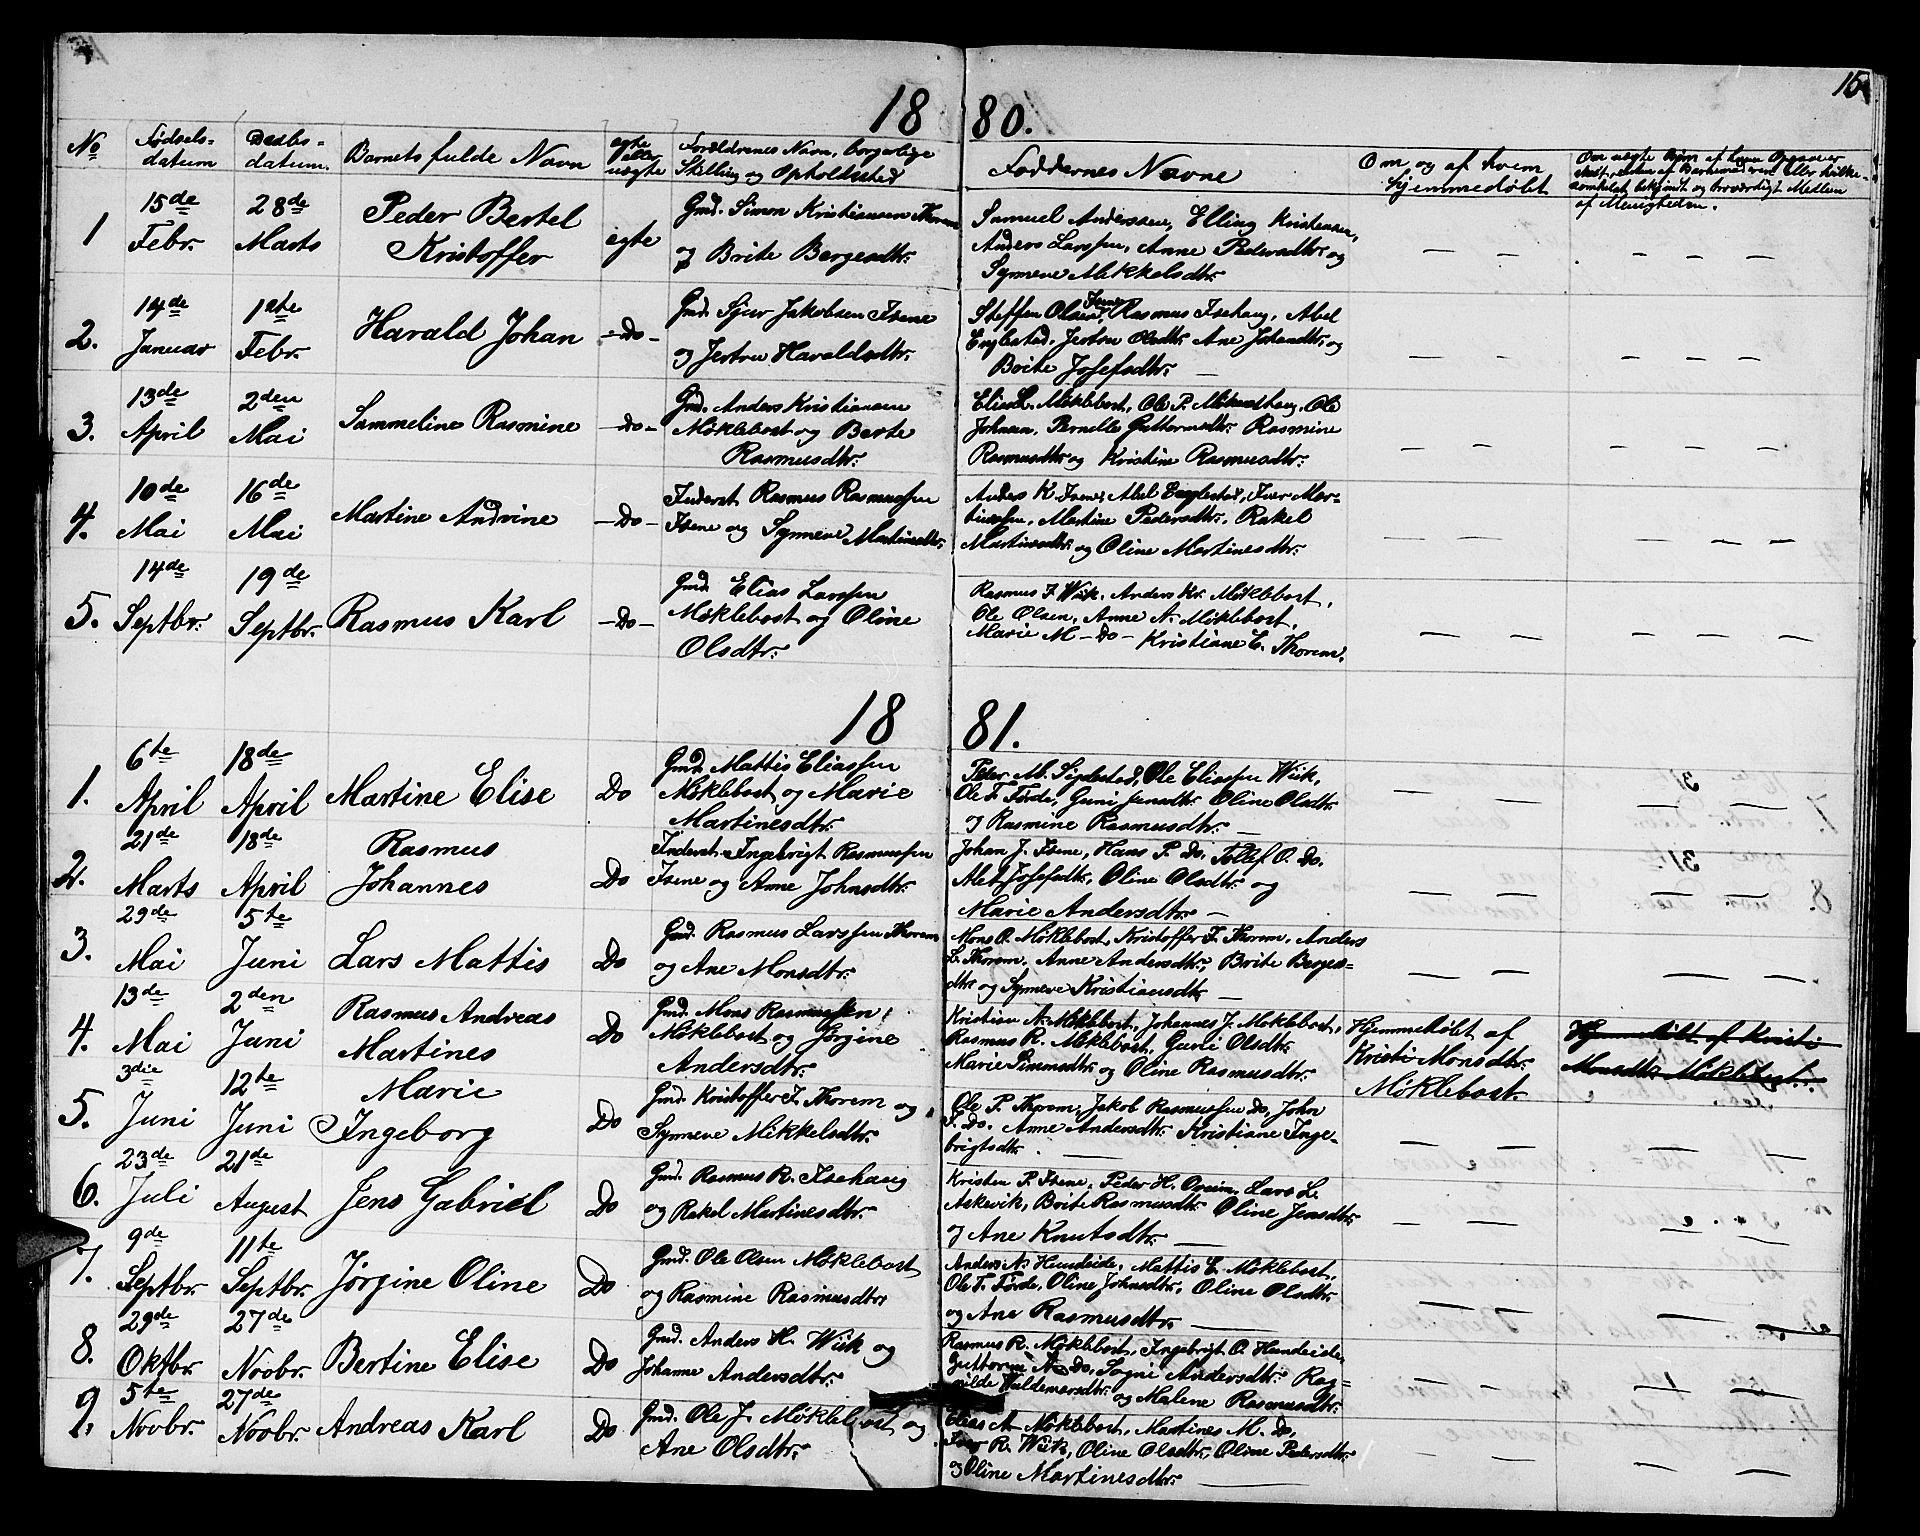 15
18 80.
No Fødsels-datum Daabs-datum. Barnets fulde Navn egte eller uegte Forældrenes Navn, borgerlige Stilling og Opholdssted Faddernes Navne Om og af hvem hjemmedøbt
1 15de Febr. 28de Marts Peder Bertel Kristoffer egte
Gmd. Simon Kristiansen Thorem
og Brite Bergesdtr.
Samuel Anderssen, Elling Kristensen,
Anders Larssen, Anne Pedersdtr. og
Synneve Mikkelsdtr.
— — — — —
2. 14de Januar 1ste Febr. Harald Johan —Do—
Gmd. Sjur Jakobsen Isene
og Jertru Haraldsdtr.
Steffen Olsen Isene, Rasmus Isehaug, Abel
Englestad, Jertru Olsdtr. Ane Johandtr. og
Brite Josefsdtr. —
— — — — —
3. 13de April 2den Mai Sammeline Rasmine —Do—
Gmd. Anders Kristiansen
Møklebost og Berte
Rasmusdtr.
Elias L. Møklebost, Ole P. Ole
Johnsen, Pernelle Guttormsdtr. Rasmine
Rasmusdtr og Kristine Rasmusdtr.
— — — — —
4. 10de Mai 16de Mai Martine Andrine —Do—
Inderst Rasmus Rasmussen
Isene og Synneve Martinsdtr.
Anders K. Isene, Abel Englestad, Iver Mar-
tinussen, Martine Pedersdtr. Rakel
Martinsdtr. og Oline Martinesdtr.
— — — — —
5. 14de Septbr. 19de Septbr. Rasmus Karl —Do—
Gmd. Elias Larssen
Møklebost og Oline
Olsdtr.
Rasmus I. Wiik. Anders Kr. Møklebost,
Ole Olsen, Anne A. Møklebost,
Marie M —Do— Kristiane E. Thorem.
— — — — —
18 81.
1. 6te April 18de April Martine Elise Do
Gmd. Mattis Eliassen
Møklebost og Marie
Martinesdtr.
Peter M. Sigdestad, Ole Eliassen Wiik,
Ole T. Førde, Guni Jensdtr. Oline Olsdtr.
og Rasmine Rasmusdtr. —
— — — — —
2. 21de Marts 18de April Rasmus Johannes Do
Inderst Ingebrigt Rasmussen
Isene og Anne Johnsdtr.
Johan J. Isene, Hans P. Do. Tollef O. Do.
Alet Josefsdtr, Oline Olsdtr. og
Marie Andersdtr. —
— — — — —
3. 29de Mai 5te Juni Lars Mattis Do
Gmd. Rasmus Larssen Thorem
og Ane Monsdtr.
Mons A. Møklebost, Kristoffer I. Thorem, Anders
L. Thorem, Anne Andersdtr., Brite Berges-
dtr. og Synneve Kristiansdtr. —
— — — — —
4. 13de Mai 2den Juni Rasmus Andreas Martines Do
Gmd. Mons Rasmussen,
Møklebost og Jørgine
Andersdtr.
Kristian A. Møklebost, Johannes J. Møklebost,
Rasmus R. Møklebost, Guni Olsdtr.
Marie Simonsdtr. og Oline Rasmusdtr.
Hjemmedøbt af
Kristi Monsdtr.
Møklebost.
Hjemmedøbt af Kristi
Monsdtr. Møklebost.
5. 3die Juni 12te Juni Marie Ingeborg Do
Gmd. Kristoffer I. Thorem og
Synneve Mikkelsdtr.
Ole P. Thorem, Jakob Rasmussen Do, John
I. Do. Anne Andersdtr. Kristiane Inge-
brigtsdtr. —
— — — — —
6. 23de Juli 21de August Jens Gabriel Do
Gmd. Rasmus R. Isehaug
og Rakel Martinesdtr.
Kristen P. Isene, Peder H. Oreim. Lars L.
Askevik, Brite Rasmusdtr. Oline Jensdtr.
og Ane Knutsdtr. —
— — — — —
7. 9de Septbr. 11te Septbr. Jørgine Oline Do
Gmd. Ole Olsen Møklebost
og Rasmine Rasmusdtr.
Anders A. Hundeide, Mattis E. Møklebost,
Ole T. Førde, Oline Johnsdtr., Oline Olsdtr.
og Ane Rasmusdtr. —
— — — — —
8. 29de Oktbr. 27de Novbr. Bertine Elise Do
Gmd. Anders H. Wiik og
Johanne Andersdtr.
Rasmus R. Møklebost, Ingebrigt O. Hundeide
Guttorm A. Do, Sogni Andersdtr. Rag-
nilde Valdemarsdtr. og Malene Rasmusdtr.
— — — — —
9. 5te Novbr. 27de Novbr. Andreas Karl Do
Gmd. Ole J. Møklebost og
Ane Olsdtr.
Elias A. Møklebost, Martines M. Do,
Iver R. Wiik, Oline Olsdtr., Oline Pedersdtr.
og Oline Martinesdtr. —
— — — — —